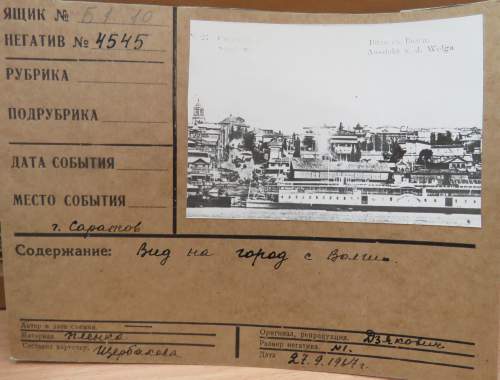 ЯЩИК № Б1.10
НЕГАТИВ № 4545
РУБРИКА
ПОДРУБРИКА
ДАТА СОБЫТИЯ
МЕСТО СОБЫТИЯ
г. Саратов
27
Видъ съ Волги.
Aussicht v. d. Wolga
Содержание: Вид на город с Волги.
Автор и дата съемки.
Материал пленка
Составил карточку. Щербакова
Оригинал, репродукция. Дзякович
Размер негатива. №1.
Дата 27.9.1967г.